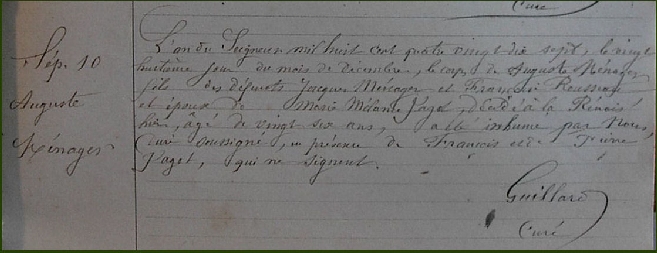 Curé
Sép. 10
Auguste
Ménager
L'an du Seigneur mil huit cent quatre vingt dix sept, le vingt
huitième jour du mois de décembre, le corps de Auguste Ménager
fils des défunts Jacques Menager et Françoise Rousseau
et époux de Marie Mélanie Paget, décédé à la
hier, âgé de vingt six ans, a été inhumé par Nous,
Curé soussigné, en présence de François et de Pierre
Paget, qui ne signent.
Guillard
Curé